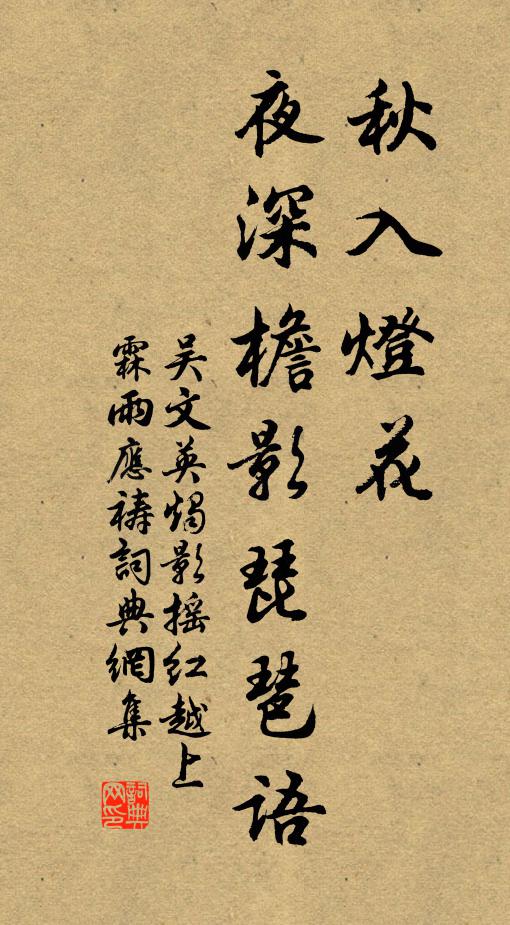 秋入燈花
夜深檐影琵琶語
吴文英燭影摇红越上
霖雨應禱詞典網集
詞典
网印